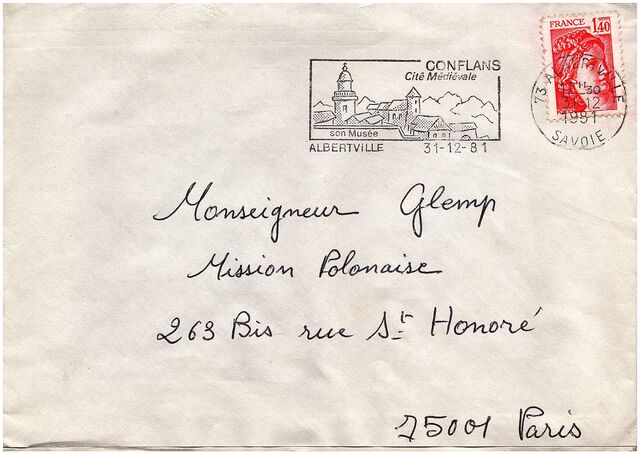 FRANCE 1,40
CONFLANS
Cité Médiévale
son Musée
ALBERTVILLE 31-12-81
73 ALBERTVILLE
31-12
1981
SAVOIE
Monseigneur Glemp
Mission Polonaise
263 Bis rue St Honoré
75001 Paris